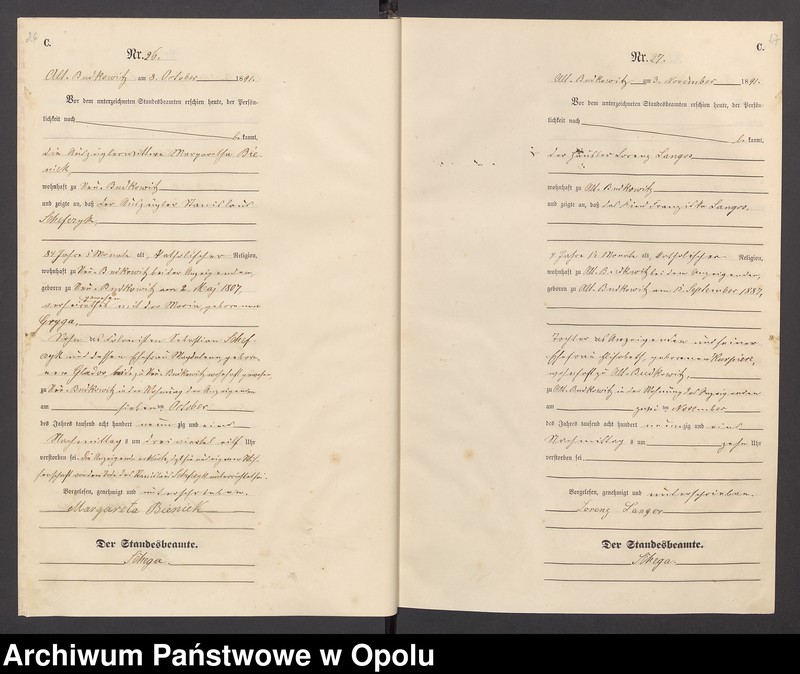 26
C.
Nr. 26.
Alt-Budkowitz am 8. October 1891.
Vor dem unterzeichneten Standesbeamten erschien heute, der Persön-
lichkeit nach
be kannt,
die Auszüglerwittwe Margaretha Bie-
niek,
wohnhaft zu Neu-Budkowitz
und zeigte an, daß der Auszügler Stanislaus
Schefczyk,
84 Jahre 5 Monate alt, katholischer Religion,
wohnhaft zu Neu-Budkowitz bei der Anzeigenden,
geboren zu Neu-Budkowitz am 2. Maj 1807,
gewesen
verheirathet mit der Maria, geborenen
Gryga,
Sohn des Colonisten Sebastian Schef-
czyk und dessen Ehefrau Magdalena, gebore-
nen Glados, beide zu Neu-Budkowitz wohnhaft gewesen,
zu Neu-Budkowitz in der Wohnung der Anzeigenden
am sieben ten October
des Jahres tausend acht hundert neun zig und eins
Nachmittag s um dreiviertel elf Uhr
verstorben sei. Die Anzeigende erklärte, daß sie aus eigener Wis-
senschaft von dem Tode des Stanislaus Schefczyk unterrichtet sei.
Vorgelesen, genehmigt und unterschrieben.
Margareta Bieniek
Der Standesbeamte.
Schega
27
C.
Nr. 27.
Alt-Budkowitz am 3. November 1891.
Vor dem unterzeichneten Standesbeamten erschien heute, der Persön-
lichkeit nach
be kannt,
der Häusler Lorenz Langer
wohnhaft zu Alt-Budkowitz
und zeigte an, daß das Kind Franziska Langer,
4 Jahre 1½ Monate alt, katholischer Religion,
wohnhaft zu Alt-Budkowitz bei dem Anzeigenden,
geboren zu Alt-Budkowitz am September 1887,
Tochter des Anzeigenden und seiner
Ehefrau Elisabeth, geborenen
wohnhaft zu Alt-Budkowitz,
zu Alt-Budkowitz in der Wohnung des Anzeigenden
am zwei ten November
des Jahres tausend acht hundert neun zig und eins
Nachmittag s um zehn Uhr
verstorben sei
Vorgelesen, genehmigt und unterschrieben.
Lorenz Langer
Der Standesbeamte.
Schega
Archiwum Państwowe w Opolu